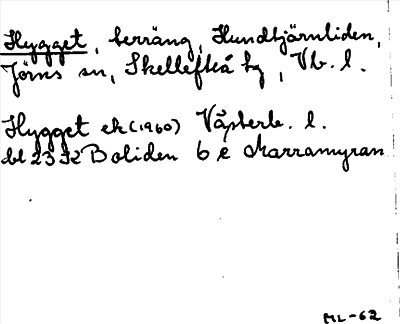 Hygget, terräng, Hundtjärnliden,
Jörns sn, Skellefteå kg, Vb. l.
Hygget ek (1960) Västerb. l.
bl 23 K Boliden 6 e Marramyran
ML-62